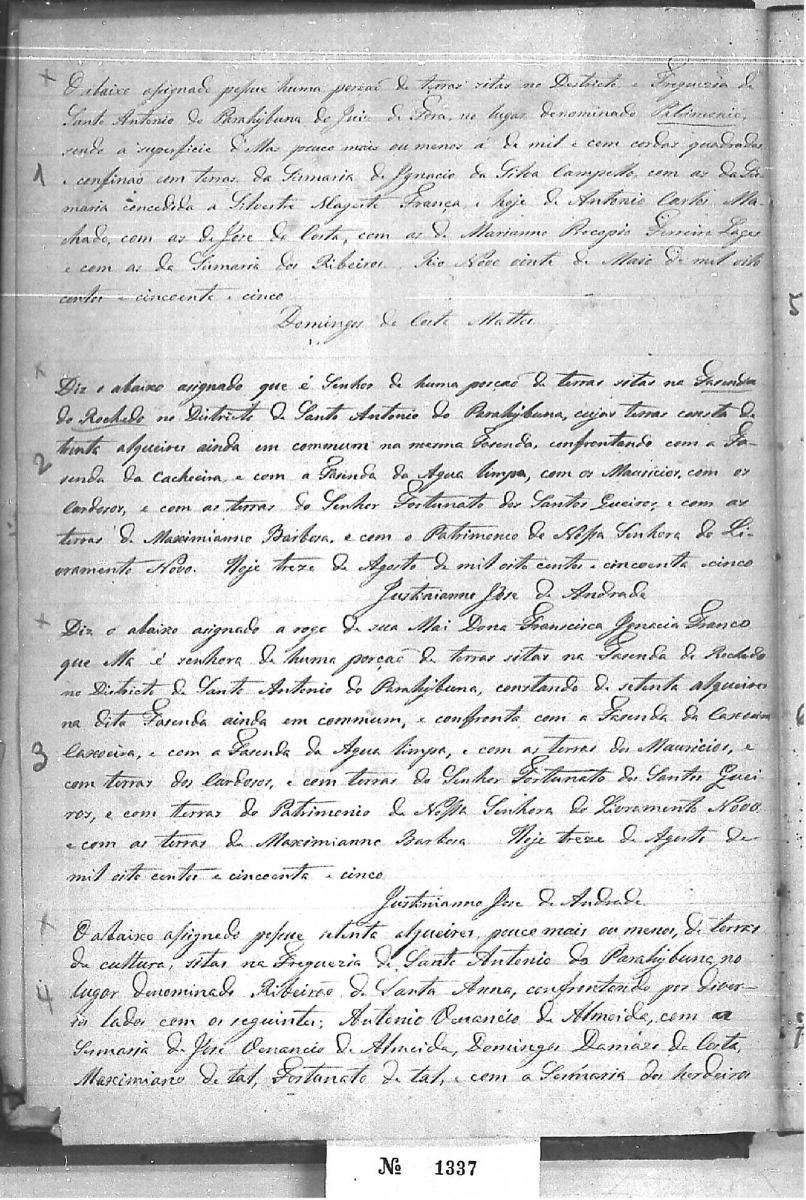 O abaixo assignado possue huma porçaõ de terras sitas no Destricto e Freguezia de
Santo Antonio do Parahybuna do Juiz de Fora, no lugar denominado Patrimonio,
sendo a superficie d'ellas pouco mais ou menos a de mil e cem cordas quadradas
e confinaõ com terras da Sesmaria de Ignacio da Silva Campello, com as da Ses-
maria concedida a Silvestre França, e hoje de Antonio Carlos Ma-
chado, com as de Jose da Costa, com as de Marianno Procopio Ferreira Lages
e com as da Sesmaria dos Ribeiros. Rio Novo vinte de Maio de mil oito
centos e cincoenta e cinco
Domingos da Costa Mattos
1
Diz o abaixo asignado que é Senhor de huma porçaõ de terras sitas na Fasenda
do Rochedo no Districto de Santo Antonio do Parahybuna, cujas terras consta de
trinta alqueires ainda em commum na mesma Fasenda, confrontando com a Fa-
senda da Cachoeira, e com a Fasenda da Agua limpa, com os Mauricios, com os
Cardosos, e com as terras do Senhor Fortunato dos Santos Queiros, e com as
terras de Maximianno Barbosa, e com o Patrimonio de Nossa Senhora do Li-
vramento Novo. Hoje treze de Agosto de mil oito centos e cincoenta e cinco
Justinianno Jose de Andrade
2
Diz o abaixo asignado a rogo de sua Mai Dona Francisca Ignacia Franco
que Ella é senhora de huma porçaõ de terras sitas na Fasenda do Rochedo
no Districto de Santo Antonio do Parahybuna, constando de setenta alqueires
na dita Fasenda ainda em commum, e confronta com a Fasenda da Caxoeira
Caxoeira, e com a Fasenda da Agua limpa, e com as terras dos Mauricios, e
com terras dos Cardosos, e com terras do Senhor Fortunato dos Santos Quei-
ros, e com terras do Patrimonio da Nossa Senhora do Livramento Novo
e com as terras de Maximianno Barbosa Hoje treze de Agosto de
mil oito centos e cincoenta e cinco
Justinianno Jose de Andrade
3
O abaixo assignado possue setenta alqueires, pouco mais ou menos, de terras
de cultura, sitas na Freguezia de Santo Antonio do Parahybuna, no
lugar denominado Ribeirão de Santa Anna, confrontando por diver-
sos lados com os seguintes; Antonio Venancio de Almeida, com a
Sesmaria de José Venancio de Almeida, Domingos Damázo da Costa,
Maximiano de tal, Fortunato de tal, e com a Sesmaria dos herdeiros
4
5
Nº 1337